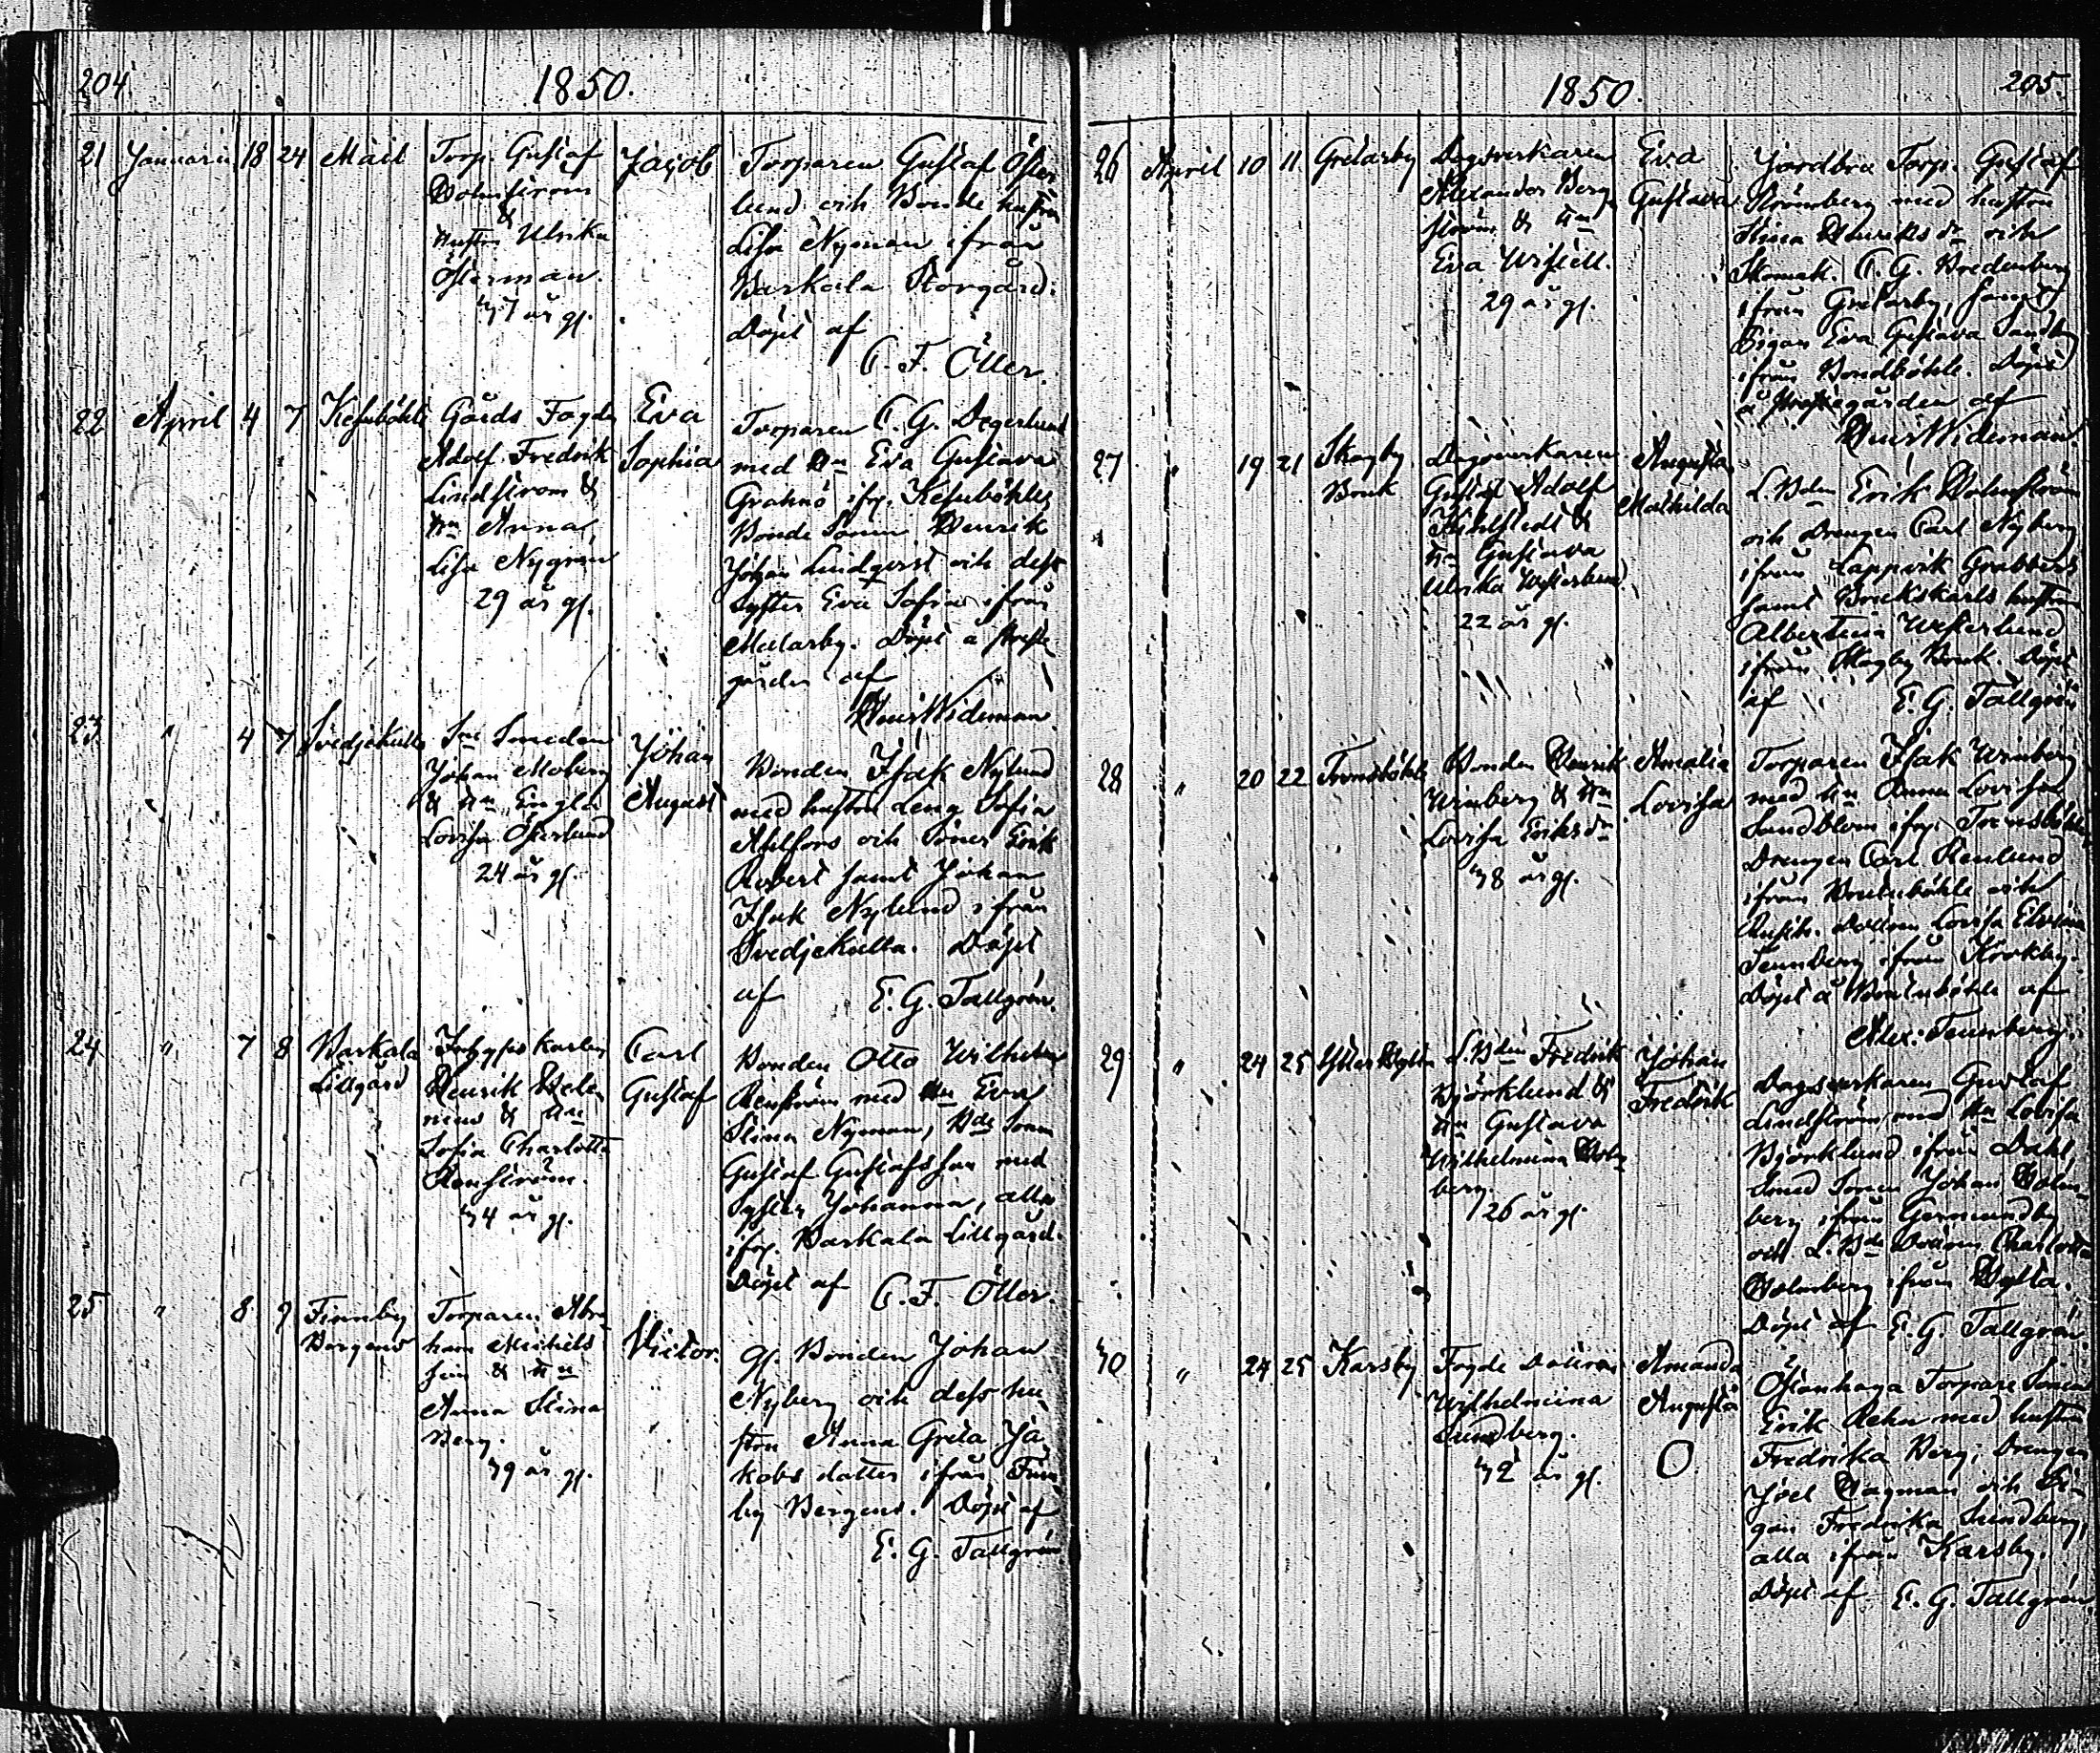 204.
1850.
21 Januarii 18 24
Torp. Gustaf
Holmström
&
Hustru Ulrika
Österman.
37 år gl.
Jacob
Torparen Gustaf Öster
lund och Bonde hustrun
Lisa Nyman ifrån
Barkala Storgård.
Döpt af
C. F. Öller.
22 April 4 7 Kesubölhe
Gårds Fogde
Adolf Fredrik
Lindström &
Hn Anna
Lisa Nygrén
29 år gl.
Eva
Sophia
Torparen C. G. Degerlund
med Hn Eva Gustava
Granö ifr. Kesubölhe
Bonde Sonen Henrik
Johan Lindqvist och dess
syster Eva Sofia ifrån
Malarby. Döpt å Preste
gården af
Henr Wideman.
23 " 4 7 Svedjekulla
Sne Smeden
Johan Moberg
& Hn Engla
Lovisa Österlund
24 år gl.
Johan
August
Bonden Isak Nylund
med hustru Lena Sofia
Ahlfors och Söner Erik
Robert samt Johan
Isak Nylund ifrån
Svedjekulla. Döpt
af E. G. Tallgrén.
24 " 7 8 Barkala
Lillgård
Henrik Hele
nius & Hn
Sofia Charlotta
Renström.
34 år gl.
Carl
Gustaf
Bonden Otto Wilhelm
Renström med Hn Eva
Stina Nyman, Bde Sonen
Gustaf Gustafsson med
Syster Johanna, alla
ifr. Barkala Lillgård.
Döpt af C. F. Öller.
25 " 8 9 Finnby
Bergens
Torparen Abra-
ham Michels
son & Hn
Anna Stina
Berg.
39 år gl.
Victor.
gl. Bonden Johan
Nyberg och dess hu-
stru Anna Greta Ja
kobs dotter ifrån Finn
by Bergens. Döpt af
E. G. Tallgrén
1850.
205.
26 April 10 11 Gretarby
Dagsverkaren
Alexander Berg
ström & Hn
Eva Wistell.
29 år gl.
Eva
Gustava
Jordbru Torp. Gustaf
Strömberg med hustru
Stina Henriks dr och
Skomak. C. G. Bredenberg
ifrån Gretarby, samt
Pigan Eva Gustava Sandberg
ifrån Bondbölhe. Döpt
å Prestegården af
Henr Wideman.
27 " 19 21 Skogby
Bruk
Dagsverkaren
Gustaf Adolf
& Hn Gustava
Ulrika Westerlund
22 år gl.
Augusta
Mathilda
L. Bdn Erik Holmström
och Drengen Carl Nyberg
ifrån Lappvik Grabbers
samt Brukskarls hustrun
Albertina Westerlund
ifrån Skogby Bruk. Döpt
af E. G. Tallgrén
28 " 20 22 Tronsböhle
Bonden Henrik
Winberg & Hn
Lovisa Eriksdr
38 år gl.
Amalia
Lovisa
Torparen Isak Winberg
med Hn Anna Lovisa
Sandblom ifr. Tronsböhle
Drengen Carl Renlund
ifrån böhle och
Kusk. Dottern Lovisa Elvira
Tennberg ifrån Krokby.
Döpt å böhle af
Alex. Tennberg.
29 " 24 25
L. Bdn Fredrik
Björklund &
Hn Gustava
Wilhelmina Holm
berg
26 år gl.
Johan
Fredrik
Dagsverkaren Gustaf
Lindström med Hn Lovisa
Björklund ifrån Dahl,
Smed Sonen Johan Holm-
berg ifrån Germundby
och L. Bde Dottren Charlotta
Holmberg ifrån Hylta.
Döpt af E. G. Tallgrén
30 " 24 25 Karsby
Fogde Dottren
Wilhelmina
Lundberg.
32 år gl.
Amanda
Augusta
O
Östanhaga Torpare Sonen
Erik Rehn med hustru
Fredrika Berg; Drengen
Joel Hagman och Pi-
gan Fredrika Lundberg,
alla ifrån Karsby.
Döpt af E. G. Tallgrén